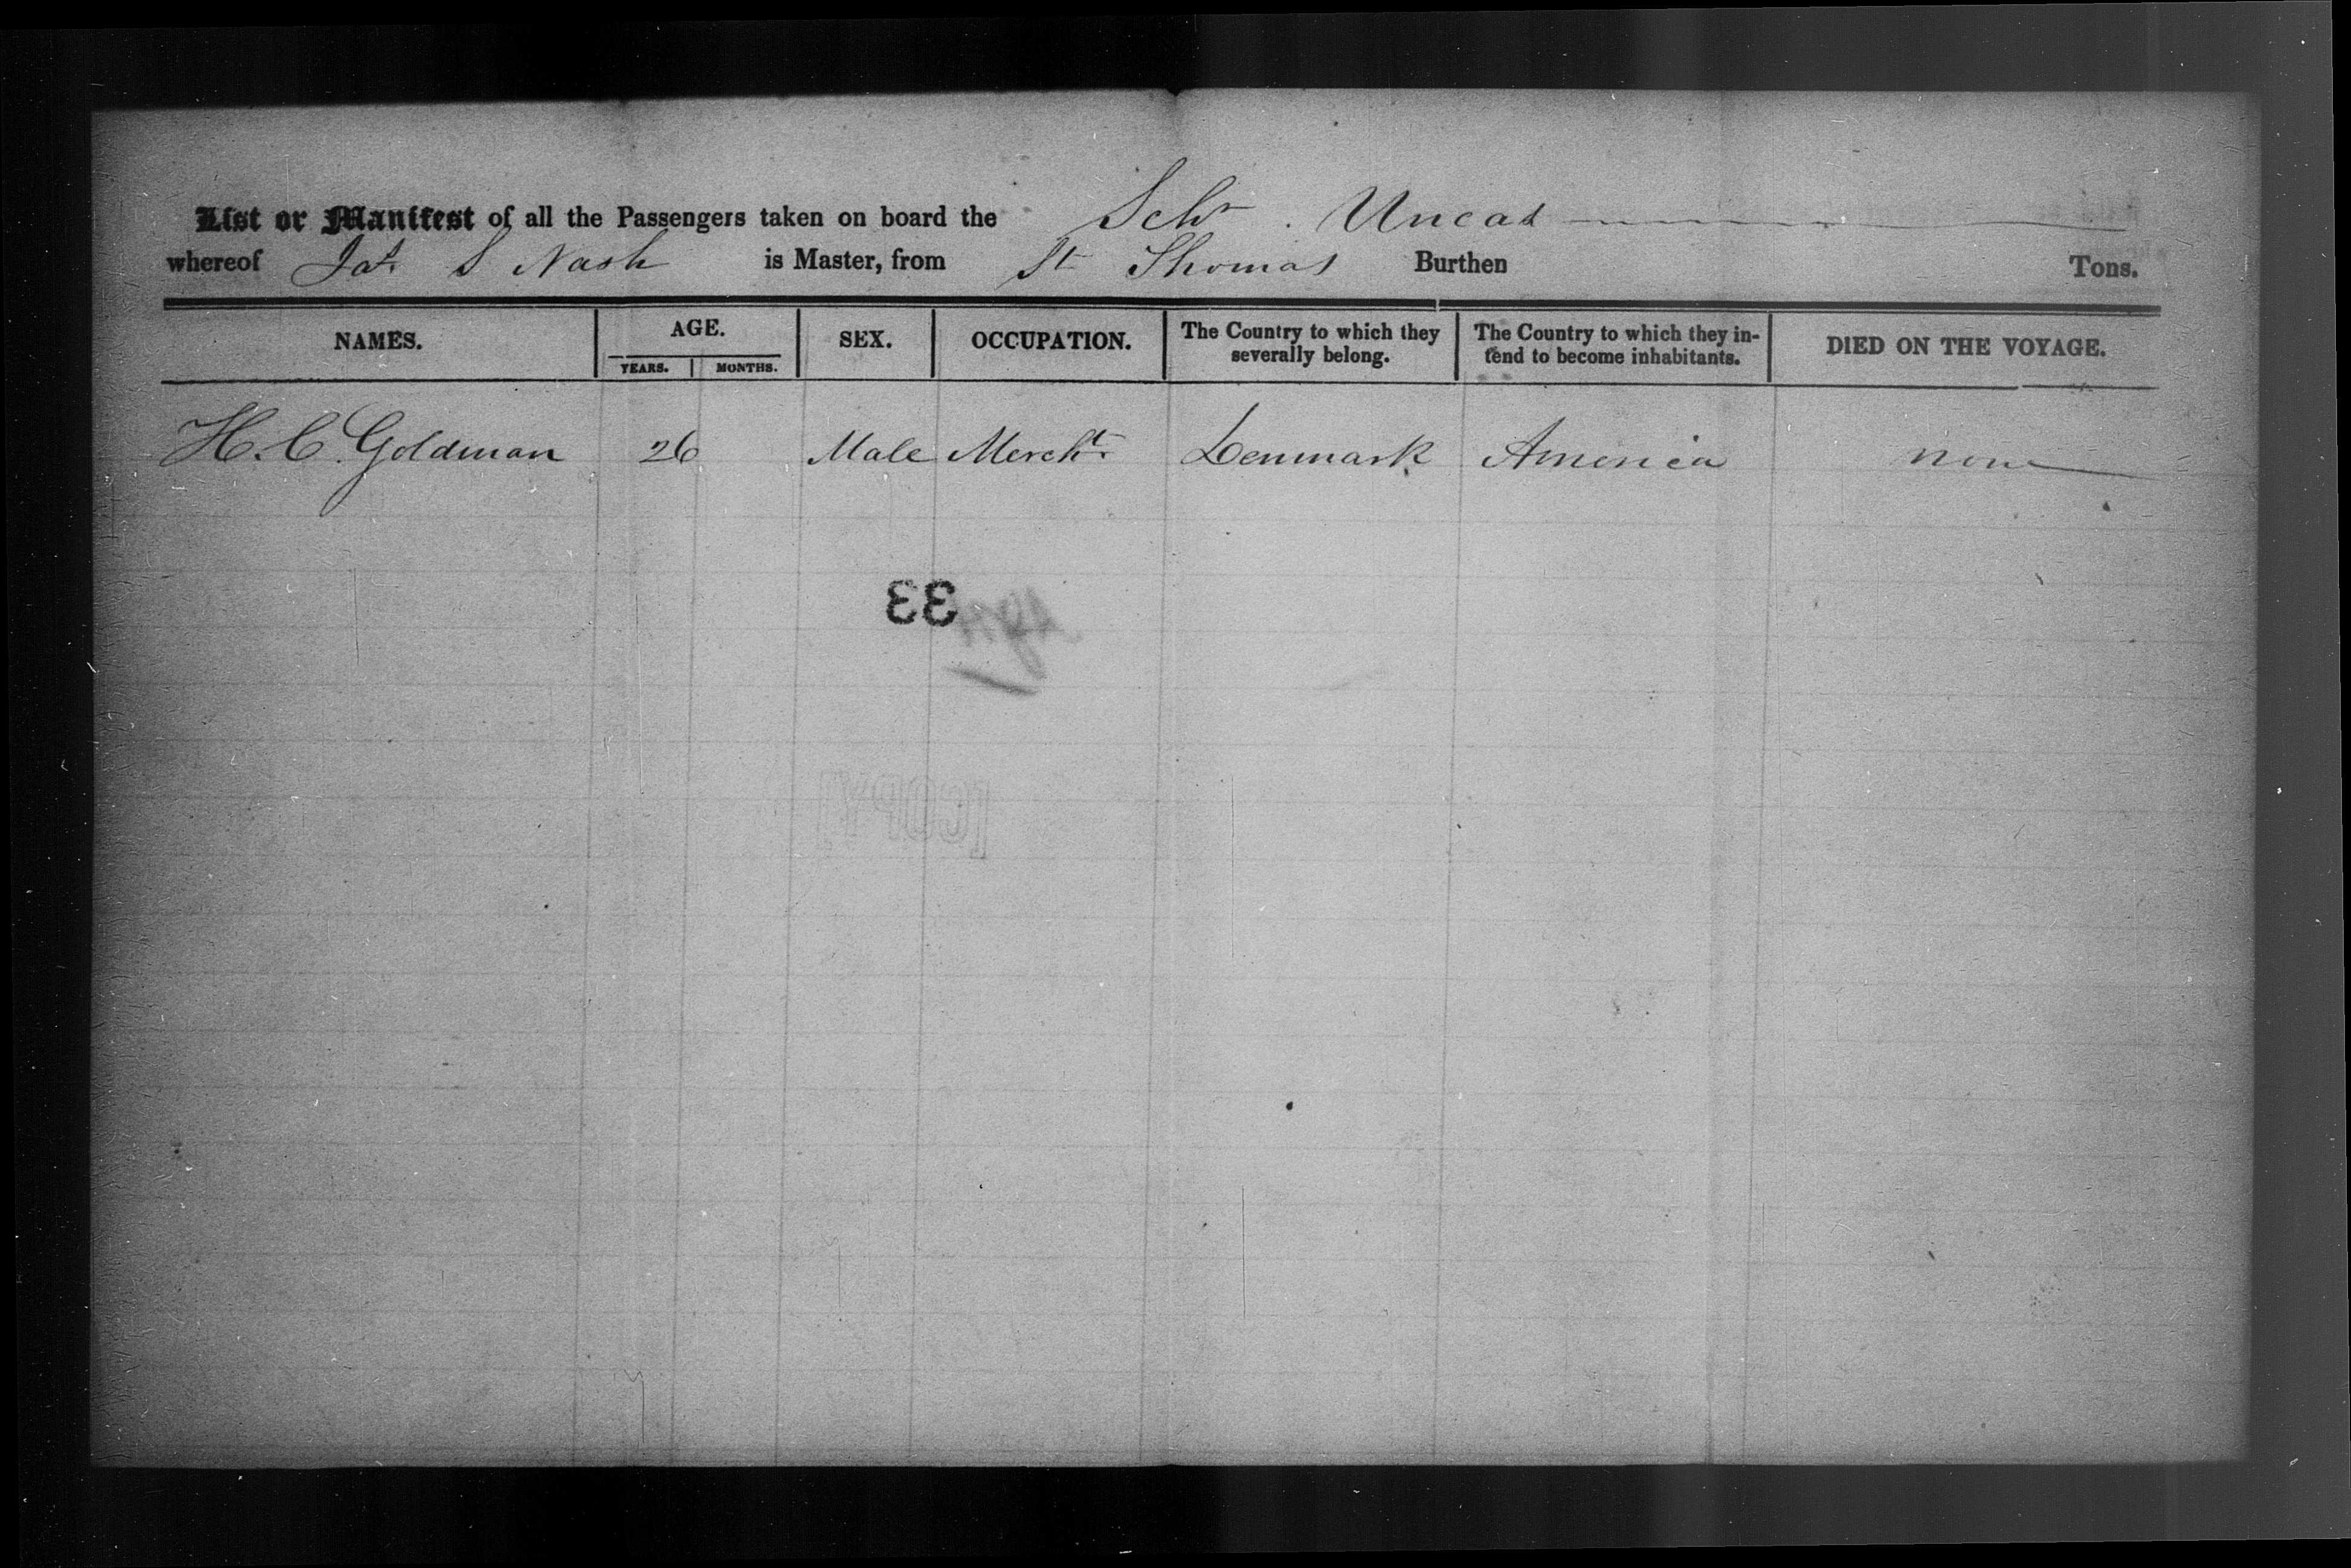 List or Manifest of all the Passengers taken on board the Schr. Uncas
whereof Jas. S Nash is Master, from St Thomas Burthen Tons.
NAMES. AGE. SEX. OCCUPATION. The Country to which they severally belong. The Country to which they in-tend to become inhabitants. DIED ON THE VOYAGE.
YEARS. MONTHS.
H. C. Goldman 26 Male Mercht. Denmark America none
33
[COPY]